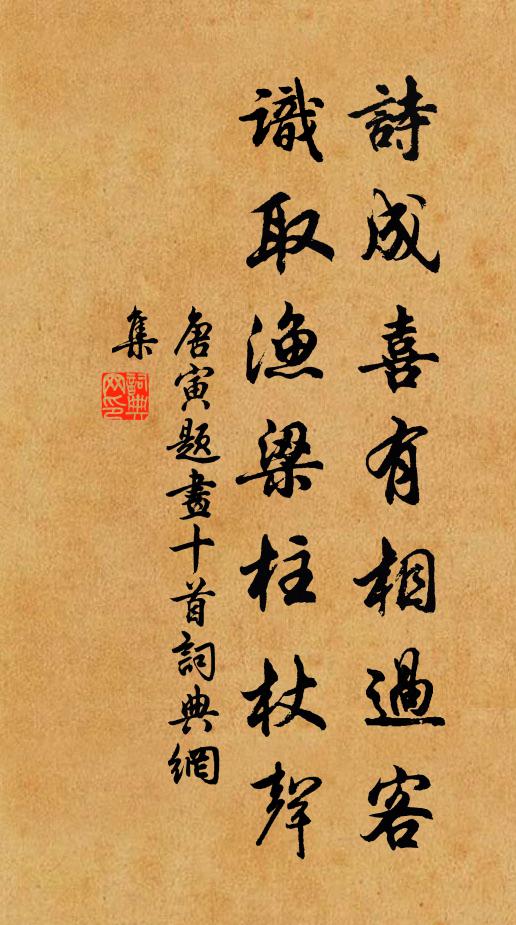 詩成喜有相過客
識取漁梁柱杖聲
唐寅題畫十首詞典網
集
詞典
网印